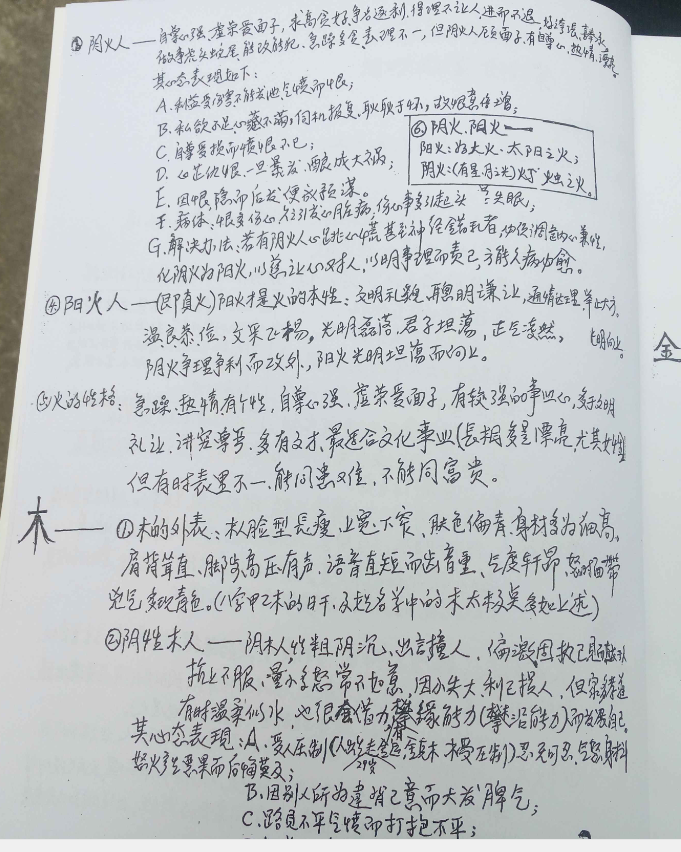 ③阴火人——自尊心强,虚荣爱面子,求高贪好,争名逐利,得理不让人,进而不退
做事虎头蛇尾,急躁多贪,表理不一,但阴火人反面子,有自尊心,热情,漂亮。
其心态表现如下:
A.利益受伤害不能发泄气愤而恨;
B.私欲不足心藏不满,伺机报复,耿耿于怀,
C.自尊受损而愤恨不已;
D.心芷仇恨,一旦暴发,酿成大祸;
E.因恨,隐而后发,便放预谋。
F.病体.恨多伤心,往引发心脏病,伤心事多引起头 失眠;
G.解决办法:若有阴火人心跳心慌甚至神经错乱者,
化阴火为阳火,以慈让人心对人,以明事理而责己,方能久病为愈。
⑥阴火.阳火——
阳火:为大火·太阳之火;
阴火:(有星.月之光)灯 烛之火。
④阳火人——(即真火)阳火才是火的本性:文明礼貌,聰明谦让,通情达理,举止大方,
温良恭俭,文采飞揚,光明磊落,君子坦荡,正气凌然,
阴火争理争利而攻外,阳火光明坦荡而向上。
⑤火的性格:急躁.热情,有个性,自尊心强,虚荣爱面子,有较强的事业心,多于文明
礼让,讲究尊严,多有文才,最适合文化事业(長相多是漂亮,尤其女性)
但有时表里不一,能同患难,不能同富贵。
木——①木的外表:木人脸型長瘦,上宽下窄,肤色偏青,身材多为细高,
肩背耸直,脚步高压有声,语音直短而齿音重,气度轩昂,怒时面带
煞气多现青色。(八字甲乙木的日干,及起名学中的木太极莫多如上述)
②阴性木人——阴木人性粗阴沉,出言撞人,偏激固执己见
抗上不服,量小多怒常不如意,因小失大,利己损人,但
有时温柔似水,也很会借力攀缘能力(攀沿能力)而发展自己。
其心态表现:A.受人压制(金克木,木受压制)忍无可忍,
怒火产生恶果而后悔莫及;
B.因别人所为違背己意而大发脾气;
C.路见不平气愤而打抱不平;
金